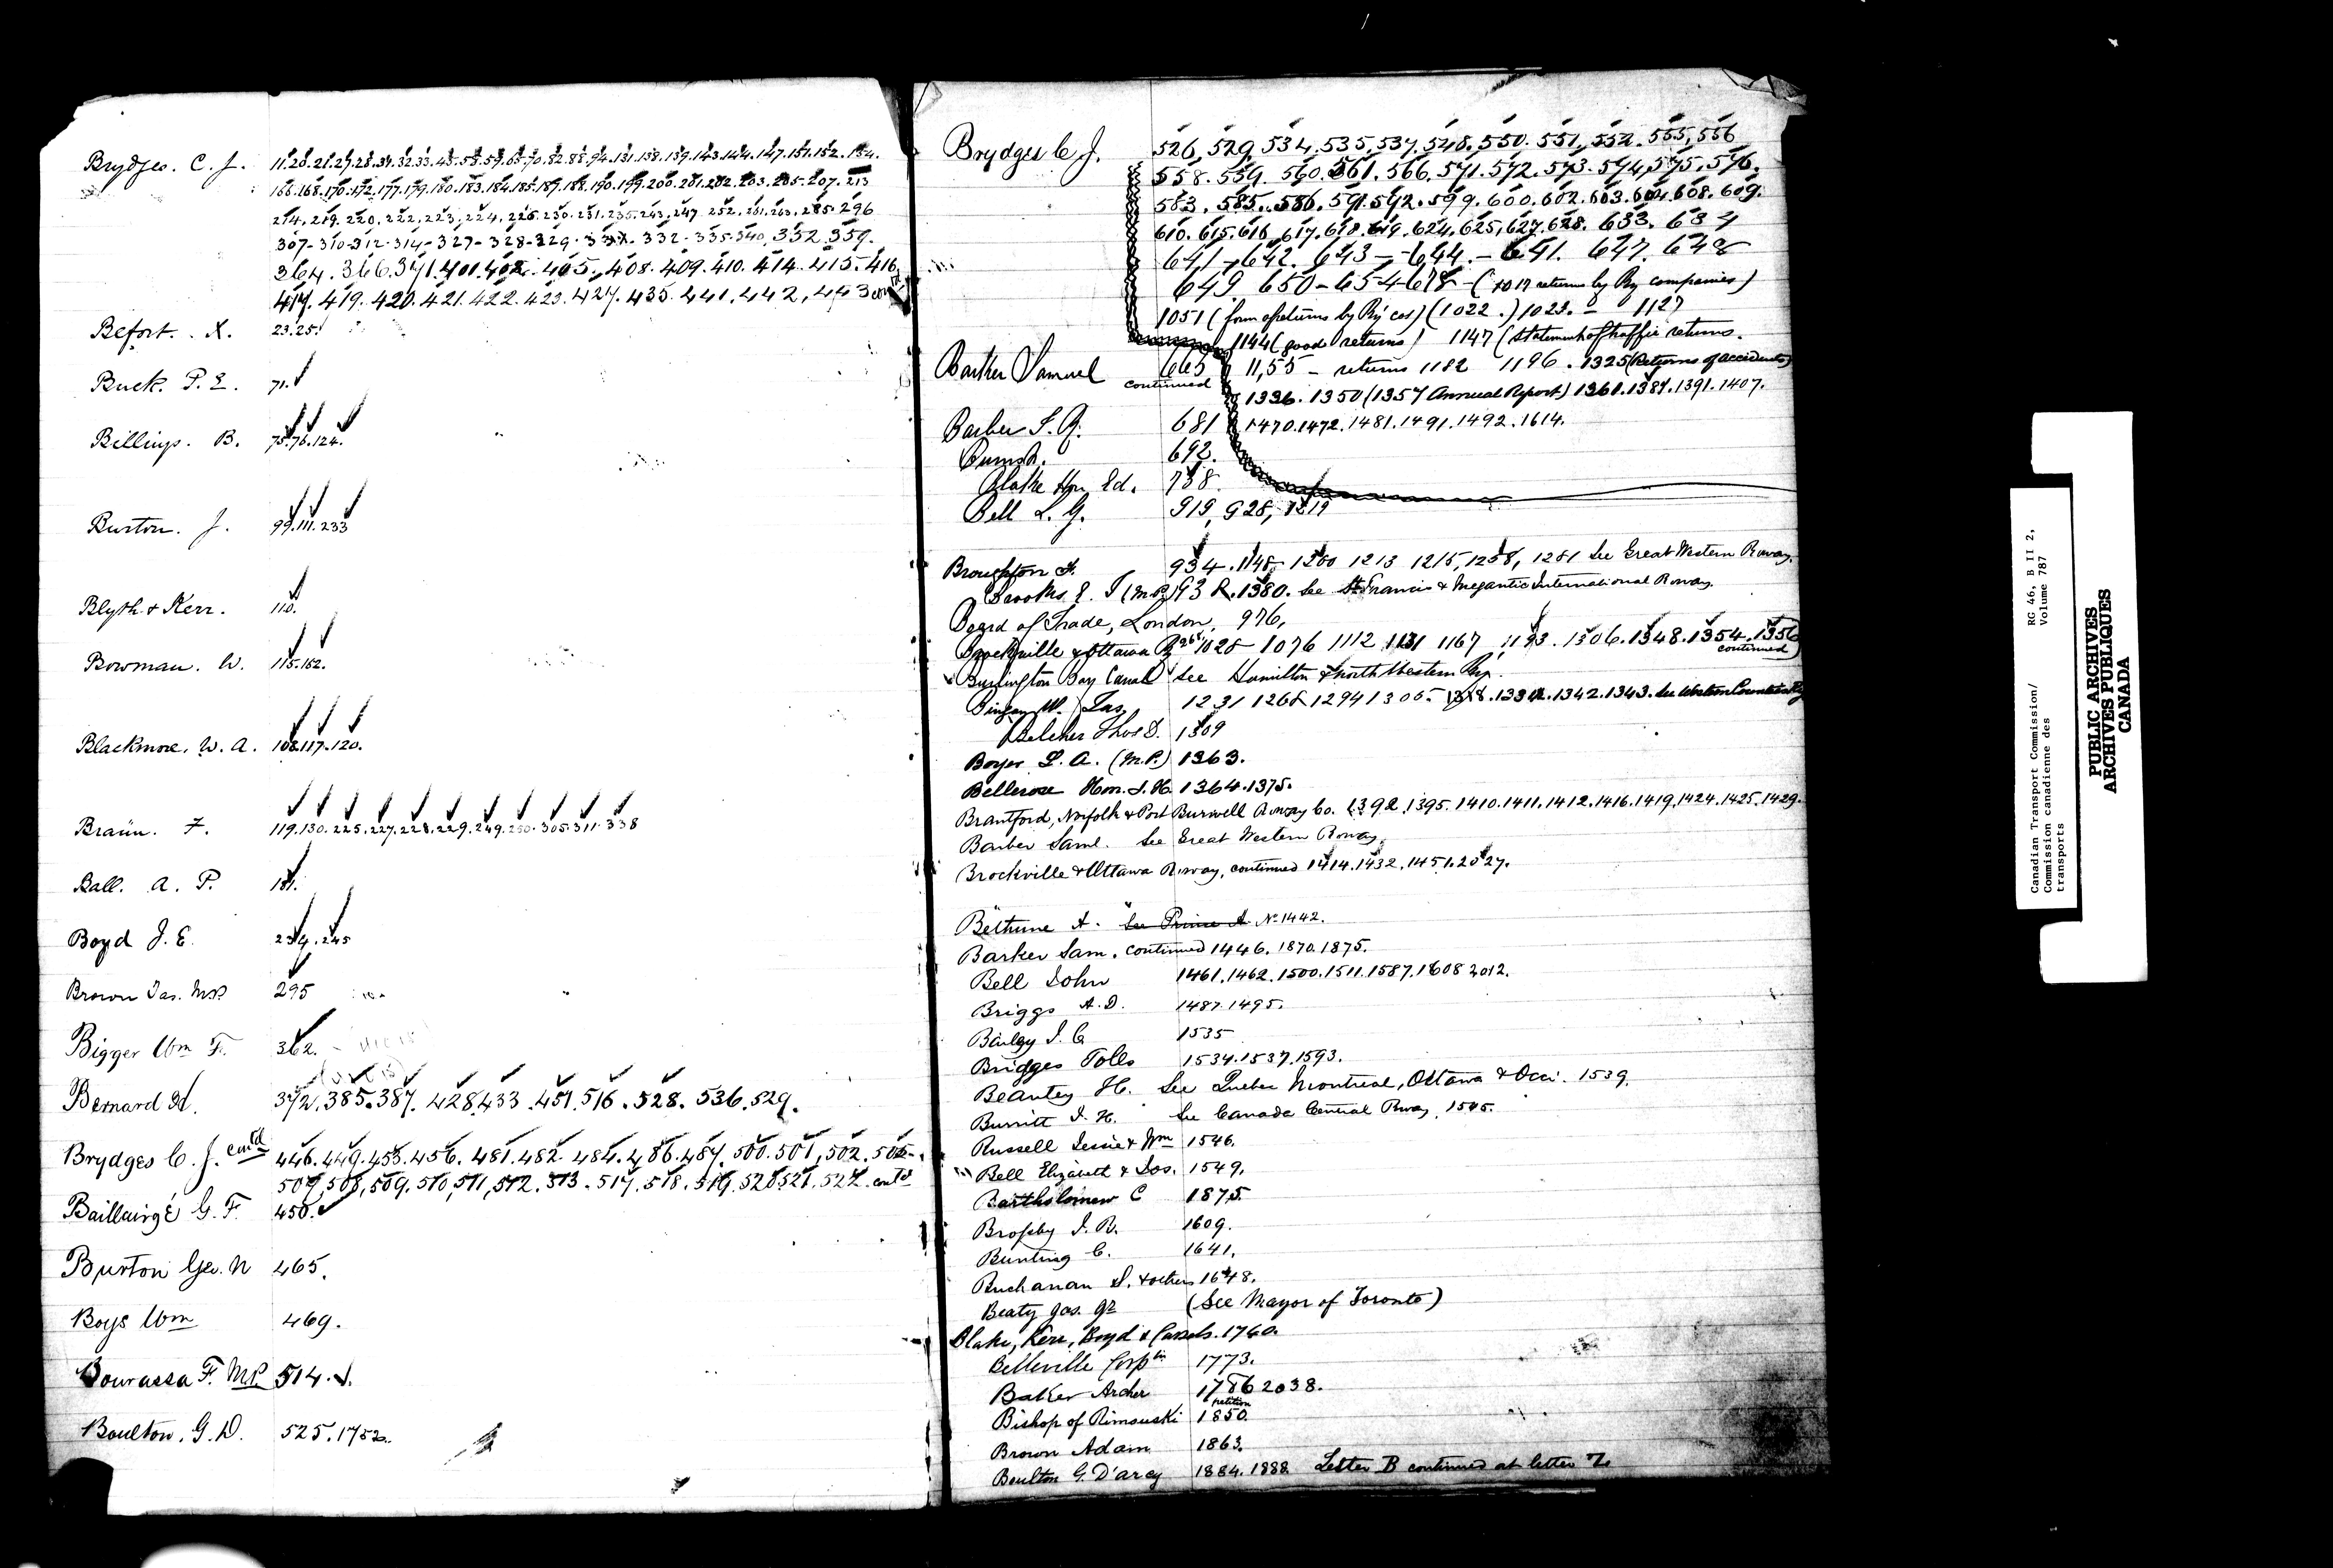 Brydges. C. J. 11.20.21.27.28.31.32.33.45.58.59.65.70.82.88.94.131.138.139.143.144.147.151.152.154.
166.168.170.172.177.179.180.183.184.185.187.188.190.199.200.201.202.203.205.207.213
214.219.220.222.223.224.226.230.231.235.243.247.252.261.263.285.296
307-310-312-314-327-328-329. 332-335-340, 352.359.
364.366.371.401.402.405.408.409.410.414.415.416
417.419.420.421.422.423.427.435.441.442,443 contd
Befort. X. 23.25.
Buck. P. E. 71.
Billings. B. 75.76.124.
Burton. J. 99.111.233
Blyth & Kerr. 110.
Bowman. W. 115.152.
Blackmore, W. A. 108.117.120.
Braün. F. 119.130.225.227.228.229.249.250.305.311.338
Ball. A. P. 181.
Boyd J. E. 234.245
Brown Jas. M.P. 295
Bigger Wm F. 362.
Bernard H. 372.385.387.428.433.451.516.528.536.529.
Brydges C. J. contd 446.449.453.456.481.482.484.486.487.500.501,502.505
507,508,509.510,511,512.513.517.518.519.520.521.522 contd
Baillairgé G. F. 450.
Burton Geo. N 465.
Boys Wm 469.
Bourassa F. M.P. 514.
Boulton. G. D. 525.1752.
Brydges C. J. 526,529,534,535,537,548.550.551,552.555,556
558.559.560.561.566.571.572.573.574,575.576.
583.585.586.591.592.599.600.602.603.604.608.609.
610.615.616.617.618.619.624,625,627,628.633.634
641-642.643-644.-641.647.648
649 650-654-678-(1017 returns by Ry companies)
1051 (form of returns by Ry cos) (1022.) 1023.- 1127
1144 (good returns) 1147 (Statement of traffic returns.
Barker Samuel 665 11,55 - returns 1182 1196.1325 (Returns of accidents)
continued 1336.1350 (1357 Annual Report) 1361.1387.1391.1407.
Barber J. R. 681 1470.1472.1481.1491.1492.1614.
692.
Blake Hon Ed. 738.
Bell L. G. 919,928,1219
Broughton F. 934.1148-1200 1213 1215,1258,1281 See Great Western R.way.
Brooks E. T (M.P.) 93 .1380. See St Francis & Megantic International R.way
Board of Trade, London, 976,
Brockville & Ottawa Ry 1028-1076 1112 1131 1167, 1193.1306.1348.1354.1356
continued)
Burlington Bay Canal See Hamilton & North Western Ry.
1231 1268 1294 1305-1318.1334.1342.1343. See Western Counties Ry
Belcher Thos D. 1309
Boyer L. A. (M.P.) 1363.
Bellerose Hon. J. H. 1364.1375.
Brantford, Norfolk & Port Burwell R.way Co. 1392.1395.1410.1411.1412.1416.1419,1424.1425.1429.
Barber Saml. See Great Western R.way.
Brockville & Ottawa R.way, continued 1414.1432.1451.2027.
Bethune A. See Prince A No 1442.
Barker Sam. continued 1446.1870.1875.
Bell John 1461.1462.1500.1511.1587.1608 2012.
Briggs A. D. 1487.1495.
Bailey J. C 1535
Bridges Tolls 1534.1537.1593.
Beautey H. See Quebec Montreal, Ottawa & Occi. 1539.
Burritt J. H. See Canada Central Rway, 1545.
Russell Jessie & Wm 1546.
Bell Elizabeth & Jos. 1549.
Bartholomew C 1875.
Brophy J. R. 1609.
Bunting C. 1641.
Buchanan S. & others 1648.
Beaty Jas. Jr (See Mayor of Toronto)
Blake, Kerr, Boyd & Cassels. 1760.
Belleville Corptn 1773.
Baker Archer 1786 2038.
petition
Bishop of Rimouski 1850.
Brown Adam 1863.
Boulton G. D'arcy 1884.1888. Letter B continued at letter Z
Canadian Transport Commission/
Commission canadienne des
transports
RG 46, B II 2,
Volume 787
PUBLIC ARCHIVES
ARCHIVES PUBLIQUES
CANADA